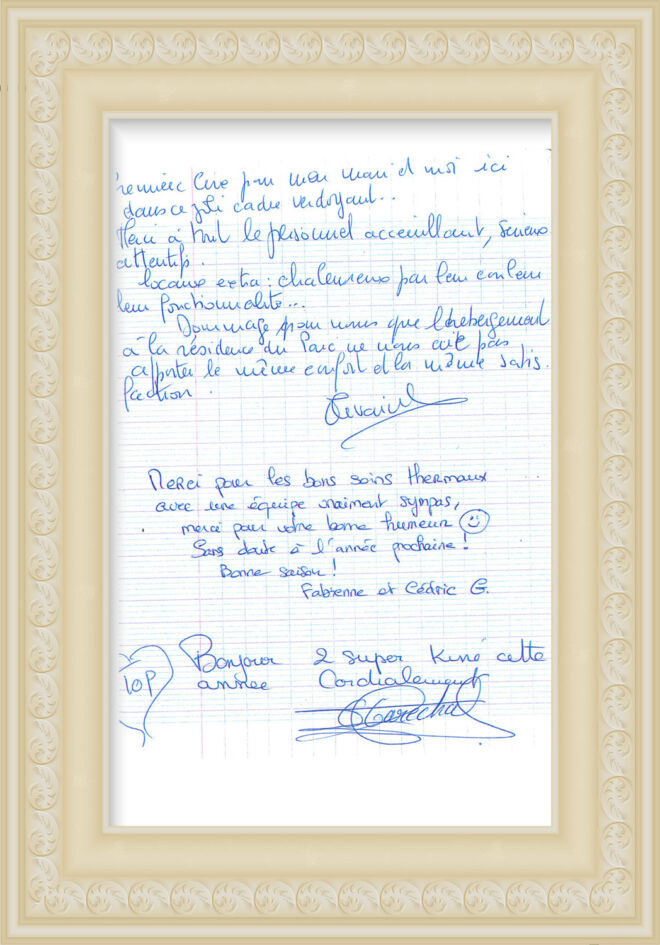 remière Cure pour mon mari et moi ici
dans ce joli cadre verdoyant...
Merci à tout le personnel acceuillant, serieux
attentifs.
locaux extra : chaleureux par leur couleur
leur fonctionnalité...
Dommage pour nous que l'hébergement
à la résidence du Parc ne nous ait pas
apporter le même confort et la même satis.
faction.
Merci pour les bons soins thermaux
avec une équipe vraiment sympas,
merci pour votre bonne humeur
Sans doute à l'année prochaine !
Bonne saison !
Fabienne et Cédric G.
TOP
Bonjour 2 super Kiné cette
année Cordialement